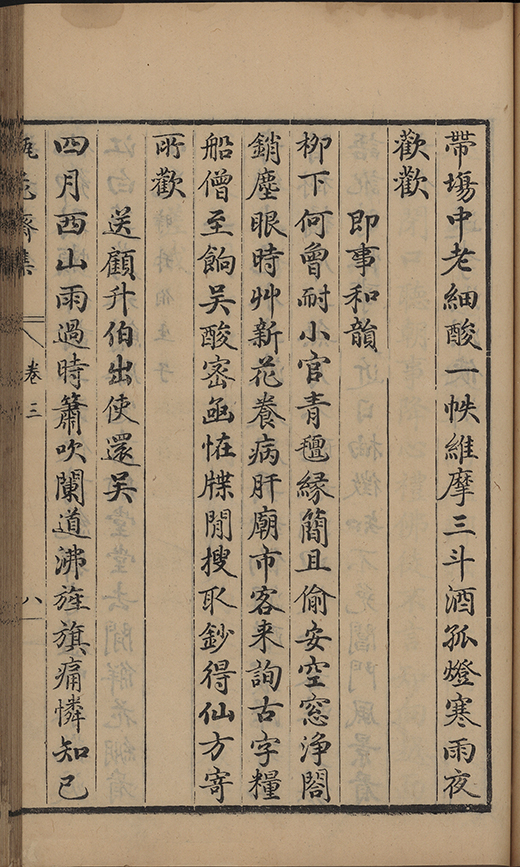 帶塲中老細酸一帙維摩三斗酒孤燈寒雨夜
歡歡
即事和韻
柳下何曾耐小官青氊緣簡且偷安空窓浄閣
銷塵眼時艸新花養病肝廟市客来詢古字糧
船僧至餉吴酸宻函恠牒閒搜取鈔得仙方寄
所歡
送顧升伯出使還吴
四月西山雨過時簫吹闐道沸旌旗痛憐知已
瓶花齋集 卷三 八